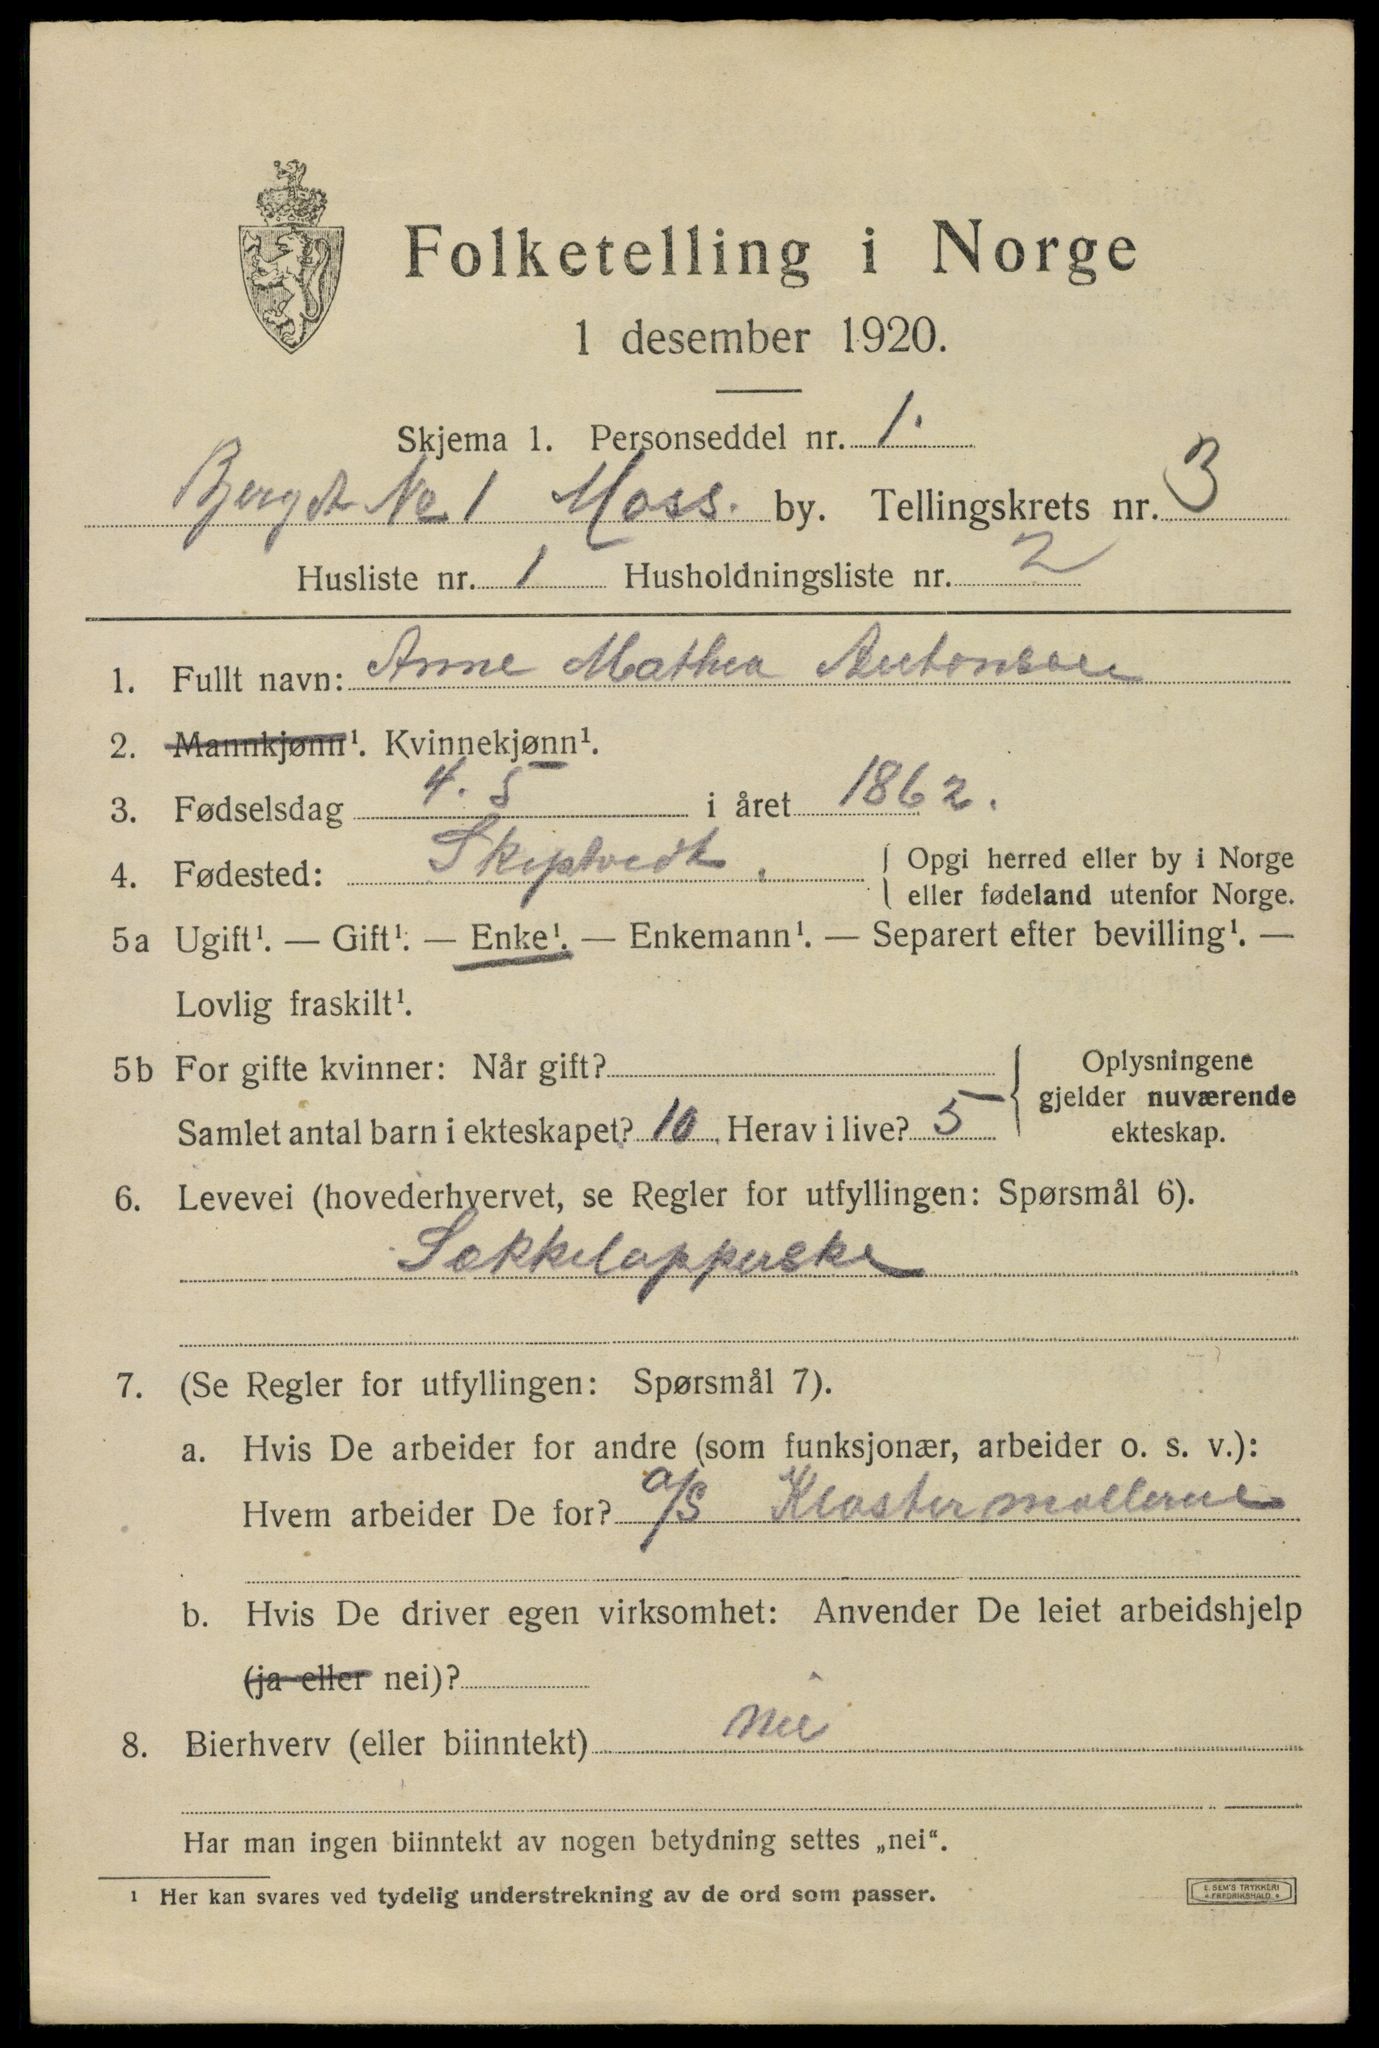 Folketelling i Norge
1 desember 1920.
Skjema 1. Personseddel nr. 1.
No 1 Moss. by. Tellingskrets nr. 3
Husliste nr. 1 Husholdningsliste nr. 2
1. Fullt navn: Anne Mathea Antonsen
2. Mannkjønn¹. Kvinnekjønn¹.
3. Fødselsdag 4. 5 i året 1862.
4. Fødested: Skiptvedt. { Opgi herred eller by i Norge
eller fødeland utenfor Norge.
5a Ugift¹. — Gift¹. — Enke¹. — Enkemann¹. — Separert efter bevilling¹. —
Lovlig fraskilt¹.
5b For gifte kvinner: Når gift? { Oplysningene
gjelder nuværende
Samlet antal barn i ekteskapet? 10. Herav i live? 5 ekteskap.
6. Levevei (hovederhvervet, se Regler for utfyllingen: Spørsmål 6).
Sekkelapperske
7. (Se Regler for utfyllingen: Spørsmål 7).
a. Hvis De arbeider for andre (som funksjonær, arbeider o. s. v.):
Hvem arbeider De for? a/s Klostermøllerne
b. Hvis De driver egen virksomhet: Anvender De leiet arbeidshjelp
(ja eller nei)?
8. Bierhverv (eller biinntekt) nei
Har man ingen biinntekt av nogen betydning settes „nei“.
¹ Her kan svares ved tydelig understrekning av de ord som passer.
E. SEM'S TRYKKERI
FREDRIKSHALD